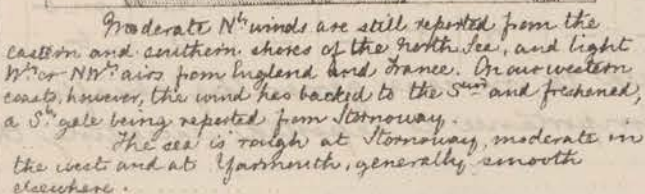 Moderate Nly winds are still reported from the
eastern and southern shores of the North Sea, and light
Wly or NWly airs from England and France. On our western
coasts, however, the wind has backed to the Sward and freshened,
a Sly gale being reported from Stornoway.
The sea is rough at Stornoway, moderate in
the west and at Yarmouth, generally smooth
elsewhere.